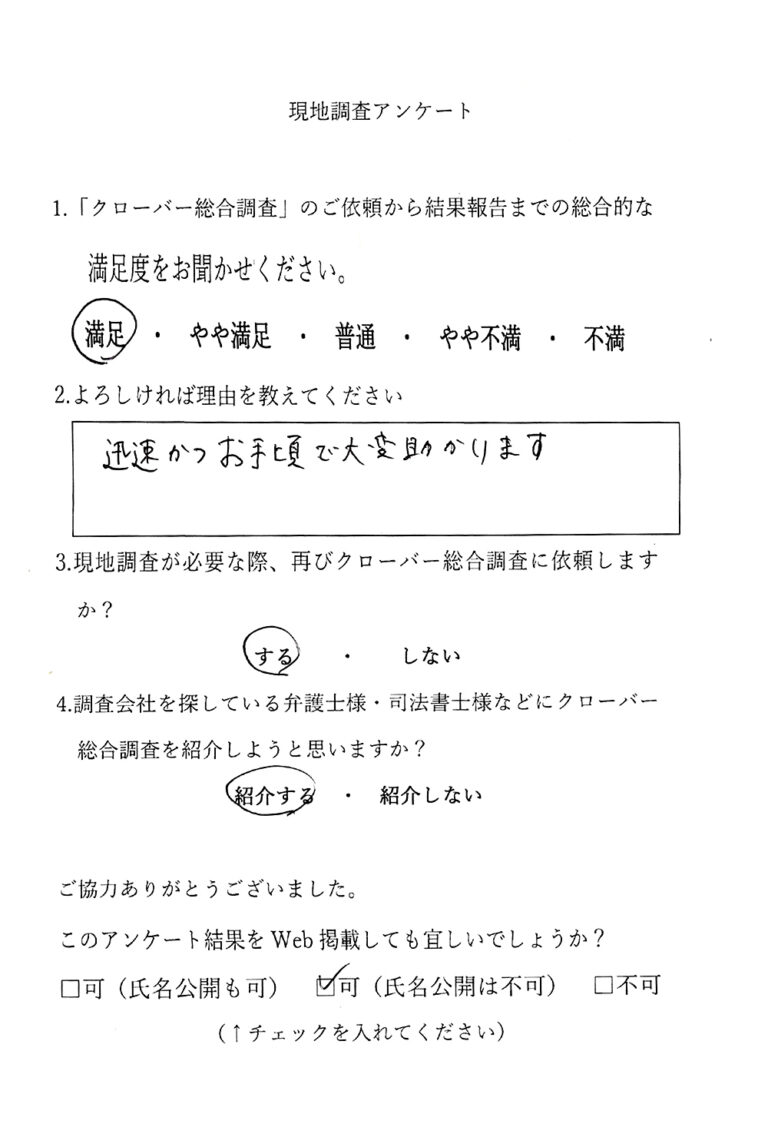 現地調査アンケート
1.「クローバー総合調査」のご依頼から結果報告までの総合的な
満足度をお聞かせください。
満足 ・ やや満足 ・ 普通 ・ やや不満 ・ 不満
2.よろしければ理由を教えてください
迅速かつお手頃で大変助かります
3.現地調査が必要な際、再びクローバー総合調査に依頼します
か？
する ・ しない
4.調査会社を探している弁護士様・司法書士様などにクローバー
総合調査を紹介しようと思いますか？
紹介する ・ 紹介しない
ご協力ありがとうございました。
このアンケート結果をWeb掲載しても宜しいでしょうか？
□可（氏名公開も可） ☑可（氏名公開は不可） □不可
（↑チェックを入れてください）